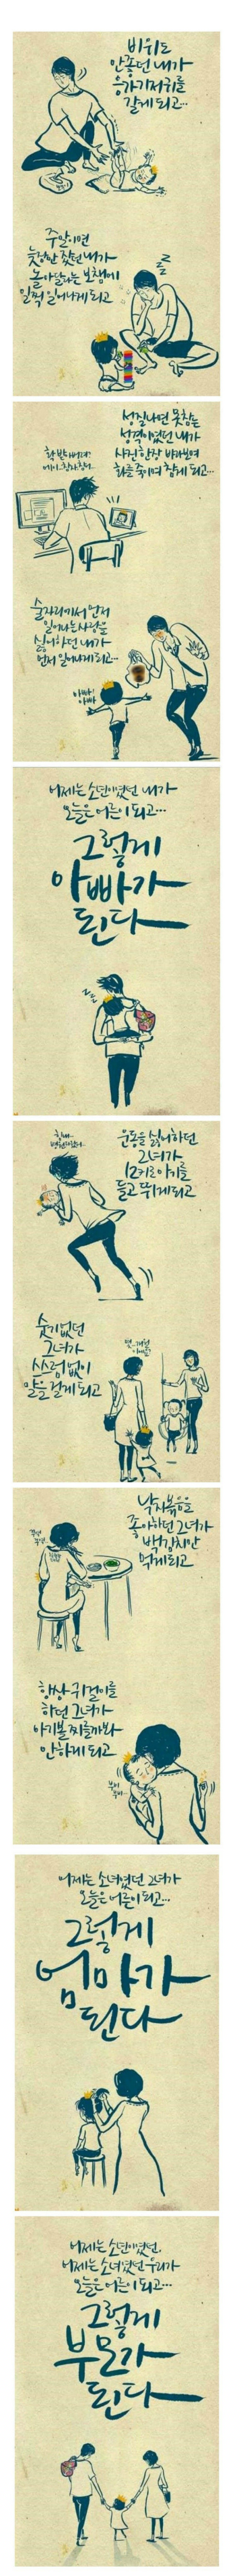 비위도
안좋던 내가
응가기저귀를
갈게 되고...
주말이면
늦잠만 잤던 내가
놀아달라는 보챔에
일찍 일어나게 되고
zzz
성질나면 못참는
성격이었던 내가
사진 한장 바라보며
화를 죽이며 참게 되고...
술자리에서 먼저
일어나는 사람을
싫어하던 내가
먼저 일어나게 되고...
아빠!
아빠
어제는 소년이었던 내가
오늘은 어른이 되고...
그렇게
아빠가
된다
zzz
운동을 싫어하던
그녀가
12키로 아기를
들고 뛰게 되고
숫기없던
그녀가
스스럼없이
말을 걸게 되고
몇..개월
낙지볶음을
좋아하던 그녀가
백김치만
먹게되고
항상 귀걸이를
하던 그녀가
아기볼 찌를까봐
안하게 되고
어제는 소녀였던 그녀가
오늘은 어른이 되고...
그렇게
엄마가
된다
어제는 소년이었던,
어제는 소녀였던 우리가
오늘은 어른이 되고...
그렇게
부모가
된다